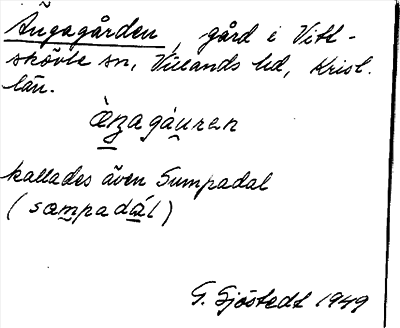 Ängagården, gård i Vitt-
skövle sn, Villands hd, Krist.
län.
æ̀ŋagáuren
kallades även Sumpadal
(sæmpadál)
G. Sjöstedt 1949